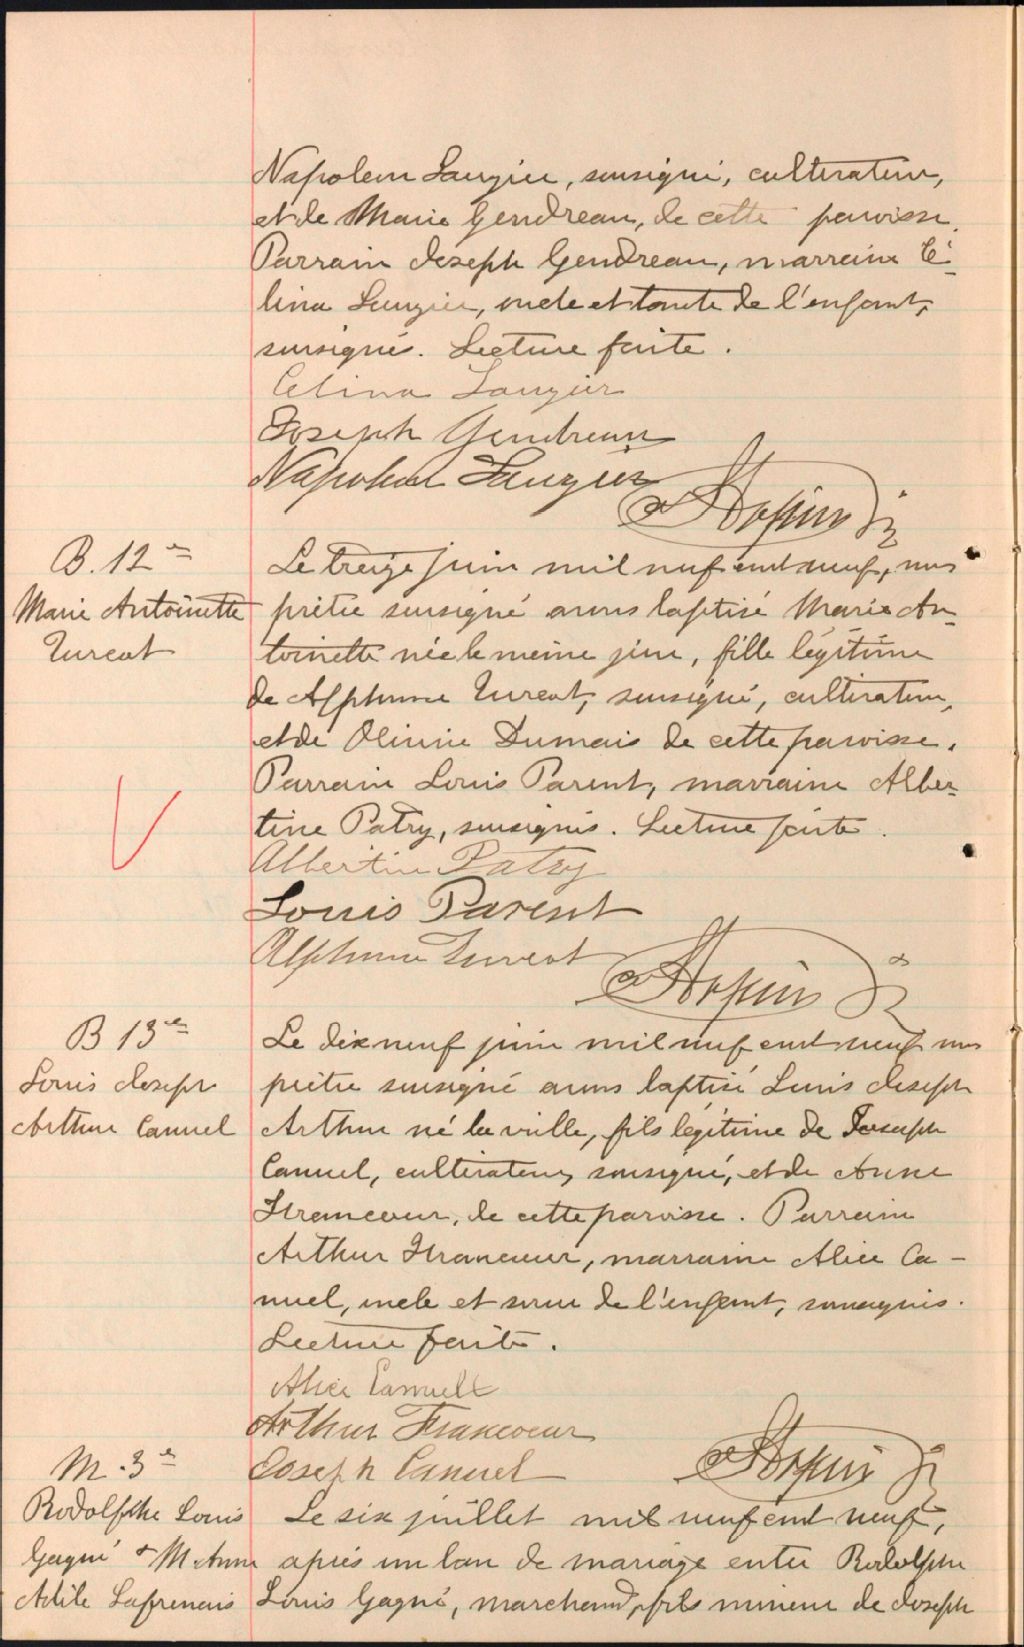 Napoleon Lauzier, soussigné, cultivateur,
et de Marie Gendreau, de cette paroisse.
Parrain Joseph Gendreau, marraine Cé-
lina Lauzier, oncle et tante de l'enfant,
soussignés. Lecture faite.
Celina Lauzier
Joseph Gendreau
Napoleon Lauzier
B. 12e
Marie Antoinette
Turcot
Le treize juin mil neuf cent neuf, nous
prêtre soussigné avons baptisé Marie An-
toinette née le même jour, fille légitime
de Alphonse Turcot, soussigné, cultivateur,
et de Olivine Dumais de cette paroisse.
Parrain Louis Parent, marraine Alber-
tine Patry, soussignés. Lecture faite.
Albertine Patry
Louis Parent
Alphonse Turcot
B 13e
Louis Joseph
Arthur Canuel
Le dix neuf juin mil neuf cent neuf nous
prêtre soussigné avons baptisé Louis Joseph
Arthur né la veille, fils légitime de Joseph
Canuel, cultivateur, soussigné, et de Anne
Francoeur, de cette paroisse. Parrain
Arthur Francoeur, marraine Alice Ca-
nuel, oncle et soeur de l'enfant, soussignés.
Lecture faite.
Alice Canuell
Arthur Francoeur
Joseph Canuel
M. 3e
Rodolphe Louis
Gagné & M Anne
Adèle Lafrenais
Le six juillet mil neuf cent neuf,
après un ban de mariage entre Rodolphe
Louis Gagné, marchand, fils mineur de Joseph